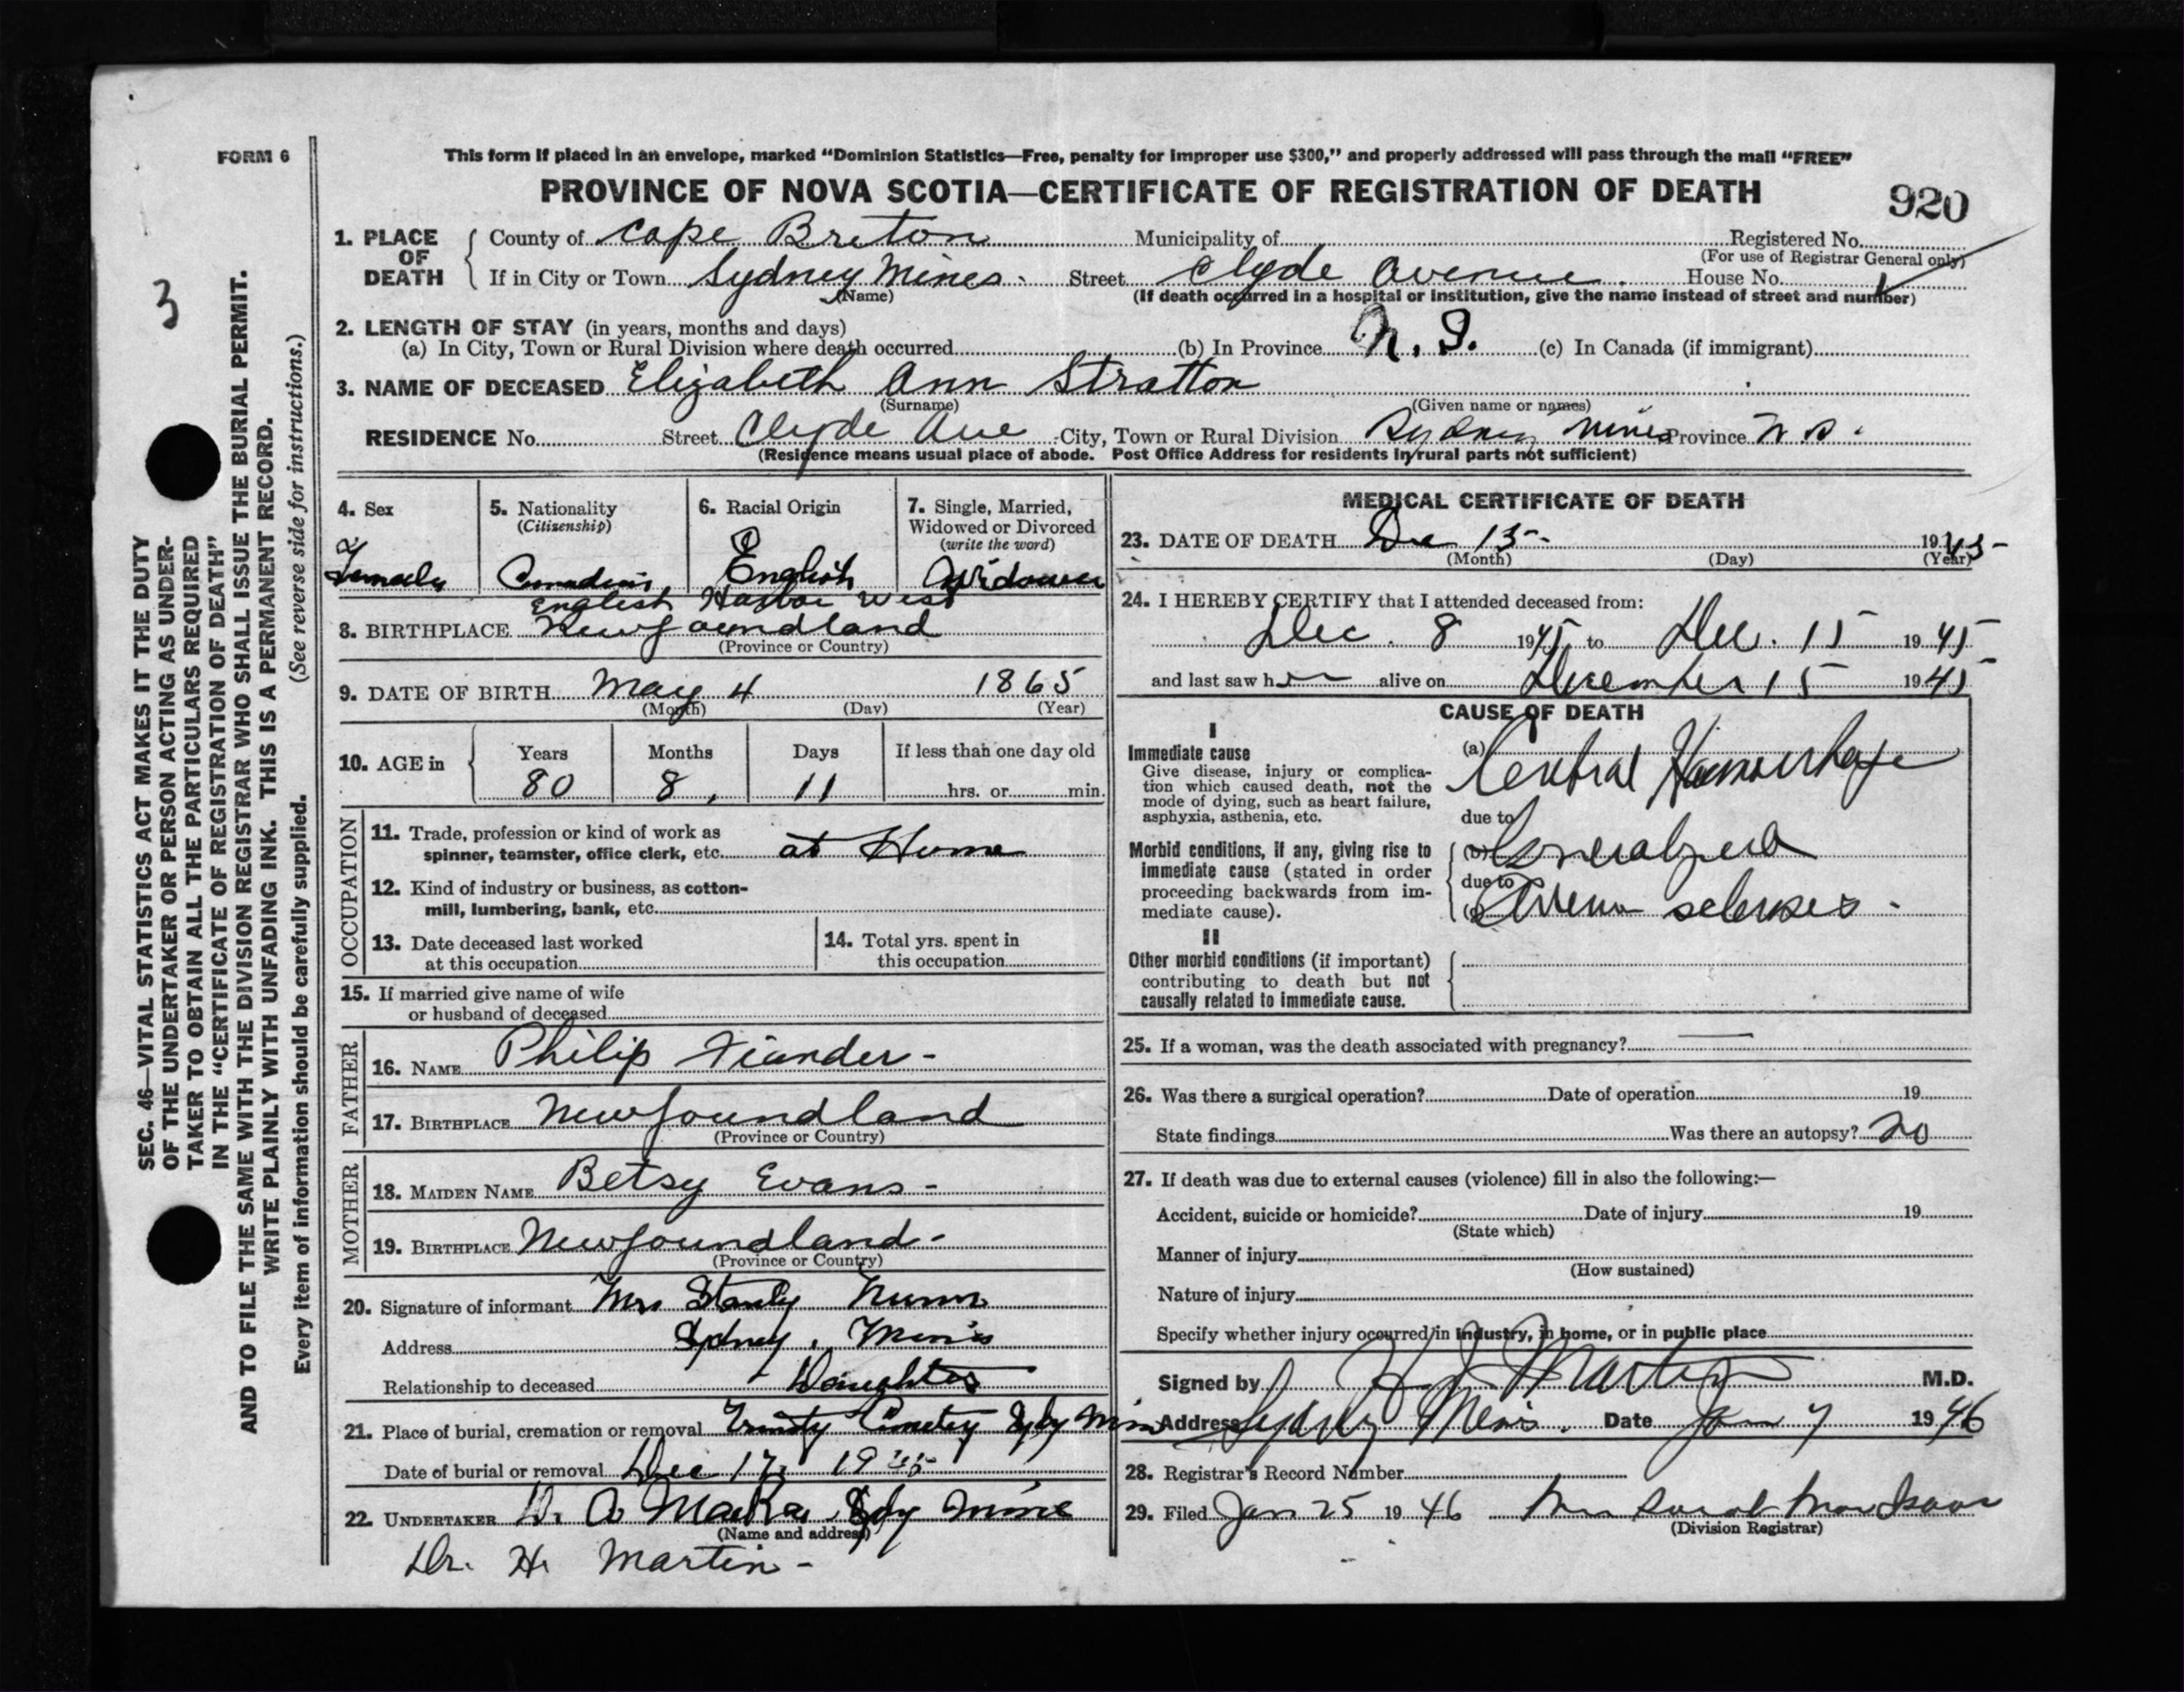 FORM 6
This form if placed in an envelope, marked “Dominion Statistics—Free, penalty for improper use $300,” and properly addressed will pass through the mail “FREE”
PROVINCE OF NOVA SCOTIA—CERTIFICATE OF REGISTRATION OF DEATH
920
1. PLACE OF DEATH
County of Cape Breton Municipality of Registered No.
(For use of Registrar General only)
If in City or Town Sydney Mines Street Clyde Avenue House No.
(Name) (If death occurred in a hospital or institution, give the name instead of street and number)
2. LENGTH OF STAY (in years, months and days)
(a) In City, Town or Rural Division where death occurred (b) In Province N. S. (c) In Canada (if immigrant)
3. NAME OF DECEASED Elizabeth Ann Stratton
(Surname) (Given name or names)
RESIDENCE No. Street Clyde Ave City, Town or Rural Division Sydney Mines Province N S.
(Residence means usual place of abode. Post Office Address for residents in rural parts not sufficient)
3
SEC. 46—VITAL STATISTICS ACT MAKES IT THE DUTY
OF THE UNDERTAKER OR PERSON ACTING AS UNDER-
TAKER TO OBTAIN ALL THE PARTICULARS REQUIRED
IN THE “CERTIFICATE OF REGISTRATION OF DEATH”
AND TO FILE THE SAME WITH THE DIVISION REGISTRAR WHO SHALL ISSUE THE BURIAL PERMIT.
WRITE PLAINLY WITH UNFADING INK. THIS IS A PERMANENT RECORD.
Every item of information should be carefully supplied. (See reverse side for instructions.)
4. Sex
Female
5. Nationality
(Citizenship)
Canadian
6. Racial Origin
English
7. Single, Married,
Widowed or Divorced
(write the word)
Widower
English Harbor West
8. BIRTHPLACE Newfoundland
(Province or Country)
9. DATE OF BIRTH May 4 1865
(Month) (Day) (Year)
10. AGE in
Years Months Days If less than one day old
80 8, 11 hrs. or min.
OCCUPATION
11. Trade, profession or kind of work as
spinner, teamster, office clerk, etc. at Home
12. Kind of industry or business, as cotton-
mill, lumbering, bank, etc.
13. Date deceased last worked
at this occupation
14. Total yrs. spent in
this occupation
15. If married give name of wife
or husband of deceased
FATHER
16. NAME Philip Fiander -
17. BIRTHPLACE Newfoundland
(Province or Country)
MOTHER
18. MAIDEN NAME Betsy Evans -
19. BIRTHPLACE Newfoundland -
(Province or Country)
20. Signature of informant Mrs Stanly Nunn
Address Sydney, Mines
Relationship to deceased Daughter
21. Place of burial, cremation or removal Trinity Cemetery Sydy Mines
Date of burial or removal Dec 17, 1945
22. UNDERTAKER D. A MacRae Sdy Mine
(Name and address)
Dr. H. Martin -
MEDICAL CERTIFICATE OF DEATH
23. DATE OF DEATH Dec 15 - 1945
(Month) (Day) (Year)
24. I HEREBY CERTIFY that I attended deceased from:
Dec. 8 1945 to Dec. 15 1945
and last saw her alive on December 15 1945
CAUSE OF DEATH
I
Immediate cause
Give disease, injury or complica-
tion which caused death, not the
mode of dying, such as heart failure,
asphyxia, asthenia, etc.
(a) Cerebral Haemorrhage
due to
Morbid conditions, if any, giving rise to
immediate cause (stated in order
proceeding backwards from im-
mediate cause).
(b) Generalized
due to
(c) Arterio sclerosis -
II
Other morbid conditions (if important)
contributing to death but not
causally related to immediate cause.
25. If a woman, was the death associated with pregnancy? —
26. Was there a surgical operation? Date of operation 19
State findings Was there an autopsy? no
27. If death was due to external causes (violence) fill in also the following:—
Accident, suicide or homicide? Date of injury 19
(State which)
Manner of injury
(How sustained)
Nature of injury
Specify whether injury occurred in industry, in home, or in public place
Signed by H J Martin M.D.
Address Sydney Mines. Date Jan 7 1946
28. Registrar's Record Number
29. Filed Jan 25 1946 Mrs Sarah MacIsaac
(Division Registrar)